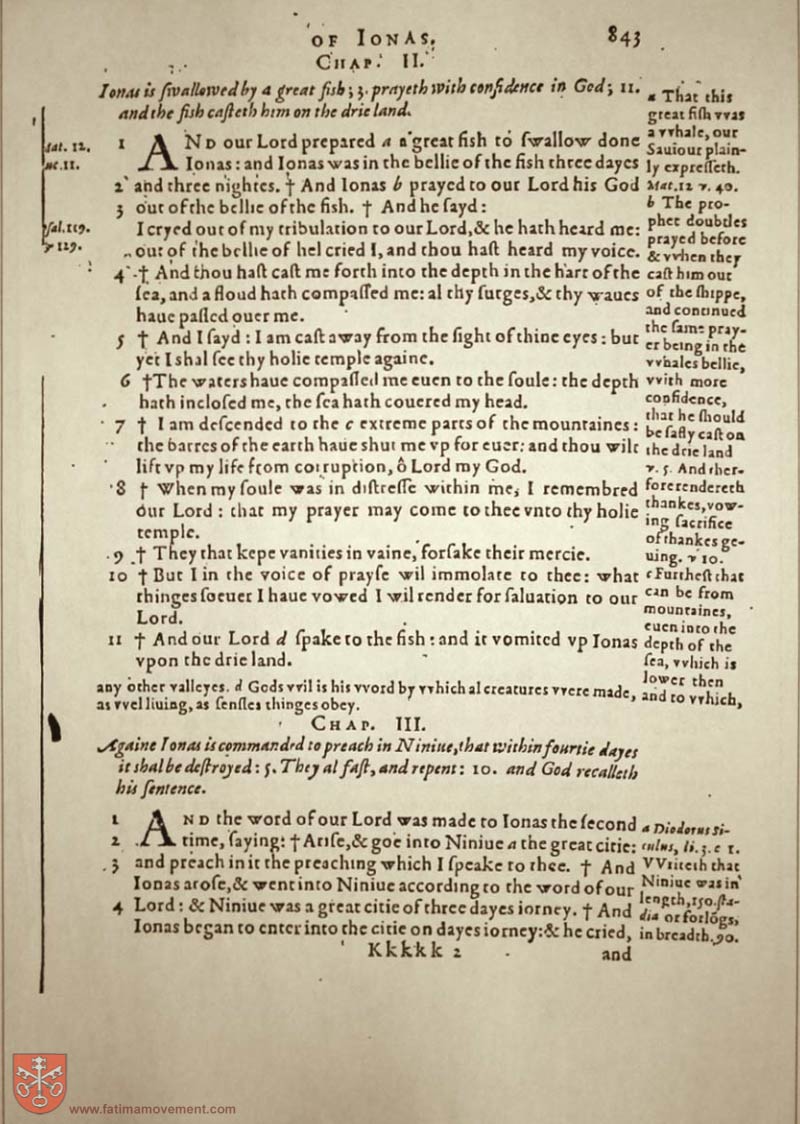 OF IONAS.
843
CHAP. II.
Ionas is ſwallowed by a great fiſh; 3. prayeth with confidence in God; 11.
and the fiſh caſteth him on the drie land.
Mat. 12.
Luc. 11.
Pſal. 119.
& 129.
1 AND our Lord prepared a a great fiſh to ſwallow done
Ionas: and Ionas was in the bellie of the fiſh three dayes
2 and three nightes. † And Ionas b prayed to our Lord his God
3 out of the bellie of the fiſh. † And he ſayd:
I cryed out of my tribulation to our Lord, & he hath heard me:
out of the bellie of hel cried I, and thou haſt heard my voice.
4 † And thou haſt caſt me forth into the depth in the hart of the
ſea, and a floud hath compaſſed me: al thy ſurges, & thy waues
haue paſſed ouer me.
5 † And I ſayd: I am caſt away from the ſight of thine eyes: but
yet I shal ſee thy holie temple againe.
6 †The waters haue compaſſed me euen to the ſoule: the depth
hath incloſed me, the ſea hath couered my head.
7 † I am deſcended to the c extreme parts of the mountaines:
the barres of the earth haue shut me vp for euer: and thou wilt
lift vp my life from corruption, ô Lord my God.
8 † When my ſoule was in diſtreſſe within me, I remembred
our Lord: that my prayer may come to thee vnto thy holie
temple.
9 † They that kepe vanities in vaine, forſake their mercie.
10 † But I in the voice of prayſe wil immolate to thee: what
thinges ſoeuer I haue vowed I wil render for ſaluation to our
Lord.
11 † And our Lord d ſpake to the fiſh: and it vomited vp Ionas
vpon the drie land.
a That this
great fiſh vvas
a vvhale, our
Sauiour plain-
ly expreſſeth.
Mat. 12 v. 40.
b The pro-
phet doubtles
prayed before
& vvhen they
caſt him out
of the ſhippe,
and continued
the ſame pray-
er being in the
vvhales bellie,
vvith more
confidence,
that he ſhould
be ſafly caſt on
the drie land
v. 5. And ther-
fore rendereth
thankes, vow-
ing ſacrifice
of thankes ge-
uing. v 10.
c Furtheſt that
can be from
mountaines,
euen into the
depth of the
ſea, vvhich is
lower then
any other valleyes. d Gods vvil is his vvord by vvhich al creatures vvere made, and to vvhich,
as vvel liuing, as ſenſles thinges obey.
CHAP. III.
Againe Ionas is commanded to preach in Niniue, that within fourtie dayes
it shal be deſtroyed: 5. They al faſt, and repent: 10. and God recalleth
his ſentence.
1 AND the word of our Lord was made to Ionas the ſecond
2 time, ſaying: † Ariſe, & goe into Niniue a the great citie:
3 and preach in it the preaching which I ſpeake to thee. † And
Ionas aroſe, & went into Niniue according to the word of our
4 Lord: & Niniue was a great citie of three dayes iorney. † And
Ionas began to enter into the citie on dayes iorney: & he cried,
a Diodorus Si-
culus, li. 3. c 1.
VVriteth that
Niniue was in
length, 150. ſta-
dia or forlōgs,
in breadth. 90.
Kkkkk 2
and
www.fatimamovement.com